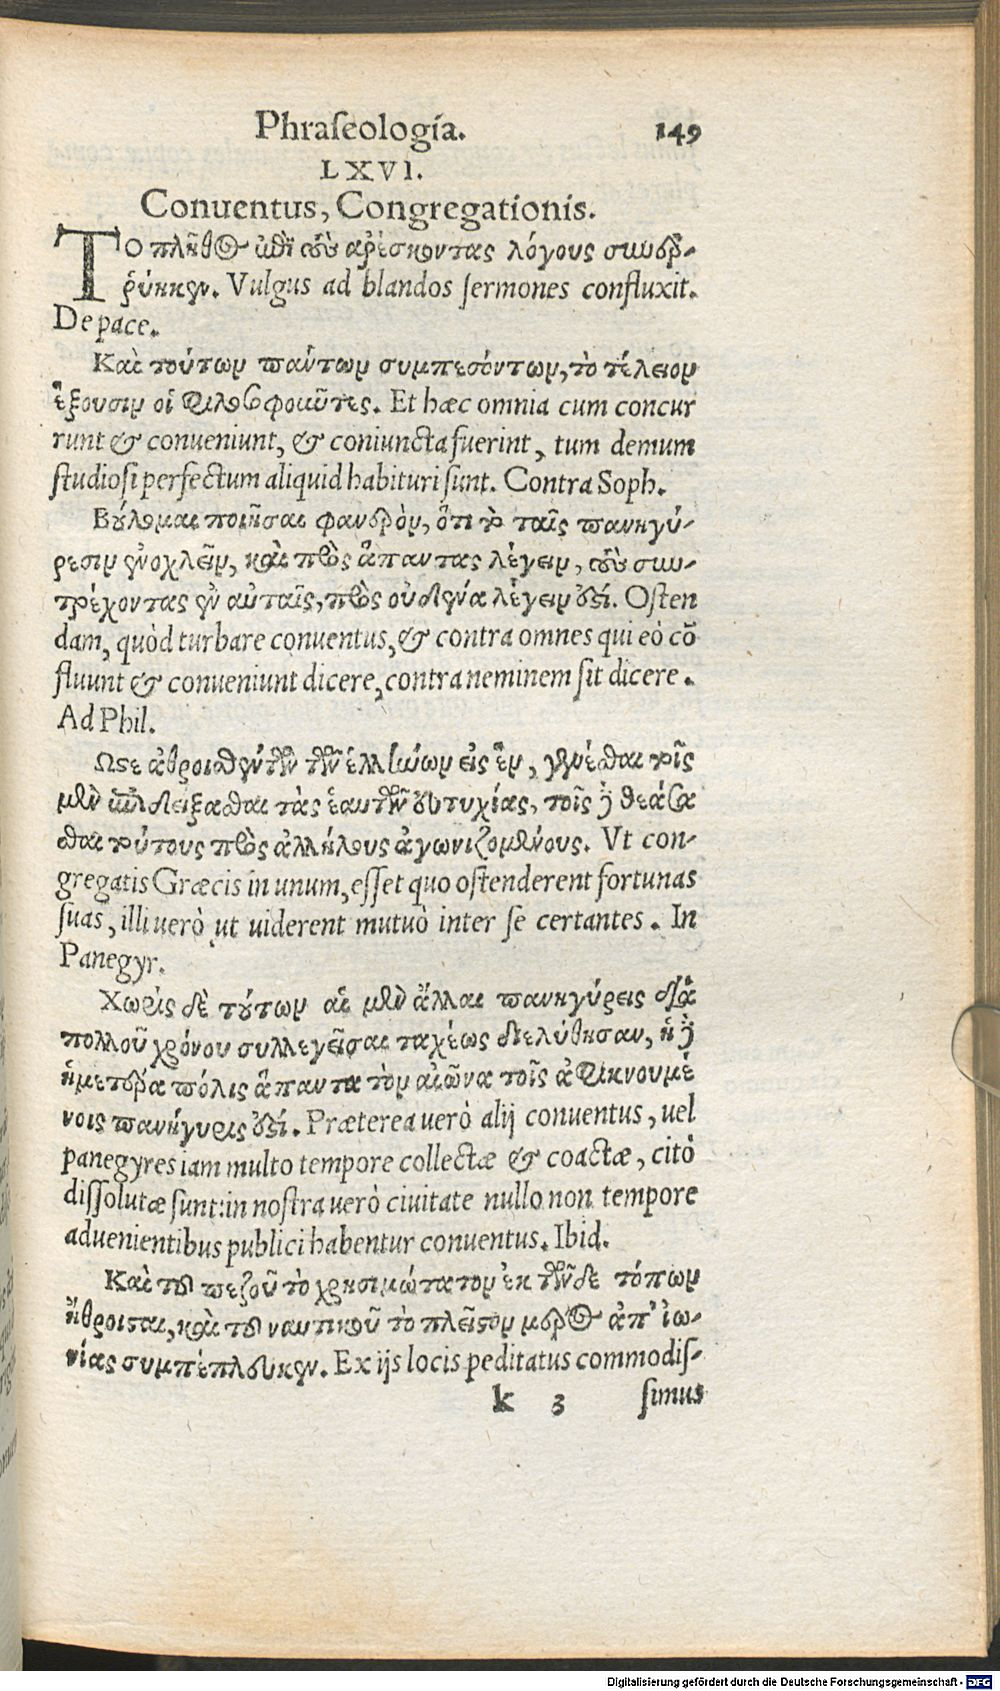 Phraſeologia. 149
LXVI.
Conuentus, Congregationis.
ΤΟ πλῆθος ἐπὶ τοὺς ἀρέσκοντας λόγους συνερ-
ρύηκεν. Vulgus ad blandos ſermones confluxit.
De pace.
Καὶ τούτων πάντων συμπεσόντων, τὸ τέλειον
ἕξουσιν οἱ φιλοσοφοῦντες. Et hæc omnia cum concur
runt & conueniunt, & coniuncta fuerint, tum demum
ſtudioſi perfectum aliquid habituri ſunt. Contra Soph.
Βούλομαι ποιῆσαι φανερὸν, ὅτι τὸ ταῖς πανηγύ-
ρεσιν ἐνοχλεῖν, καὶ πρὸς ἅπαντας λέγειν, τοὺς συν-
τρέχοντας ἐν αὐταῖς, πρὸς οὐδένα λέγειν ἐστί. Oſten
dam, quòd turbare conuentus, & contra omnes qui eò cō
fluunt & conueniunt dicere, contra neminem ſit dicere.
Ad Phil.
Ὥστε ἀθροισθέντων τῶν ἑλλήνων εἰς ἓν, γενέσθαι τοῖς
μὲν ἐπιδείξασθαι τὰς ἑαυτῶν εὐτυχίας, τοῖς δὲ θεάσα
σθαι τούτους πρὸς ἀλλήλους ἀγωνιζομένους. Vt con-
gregatis Græcis in unum, eſſet quo oſtenderent fortunas
ſuas, illi uerò ut uiderent mutuò inter ſe certantes. In
Panegyr.
Χωρὶς δὲ τούτων αἱ μὲν ἄλλαι πανηγύρεις διὰ
πολλοῦ χρόνου συλλεγεῖσαι ταχέως διελύθησαν, ἡ δὲ
ἡμετέρα πόλις ἅπαντα τὸν αἰῶνα τοῖς ἀφικνουμέ
νοις πανήγυρις ἐστί. Præterea uerò alij conuentus, uel
panegyres iam multo tempore collectæ & coactæ, citò
diſſolutæ ſunt: in noſtra uerò ciuitate nullo non tempore
aduenientibus publici habentur conuentus. Ibid.
Καὶ τοῦ πεζοῦ τὸ χρησιμώτατον ἐκ τῶνδε τόπων
ἤθροισται, καὶ τοῦ ναυτικοῦ τὸ πλεῖστον μέρος ἀπ' ἰω-
νίας συμπέπλευκεν. Ex ijs locis peditatus commodiſ-
k 3 ſimus
Digitalisierung gefördert durch die Deutsche Forschungsgemeinschaft - DFG